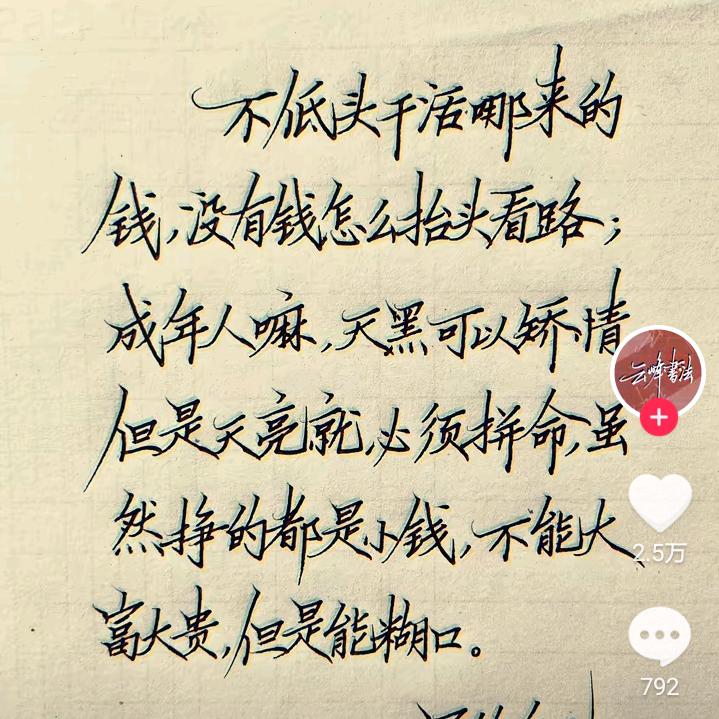 不低头干活哪来的
钱，没有钱怎么抬头看路；
成年人嘛，天黑可以矫情
但是天亮就必须拼命，虽
然挣的都是小钱，不能大
富大贵，但是能糊口。
云峰书法
2.5万
792